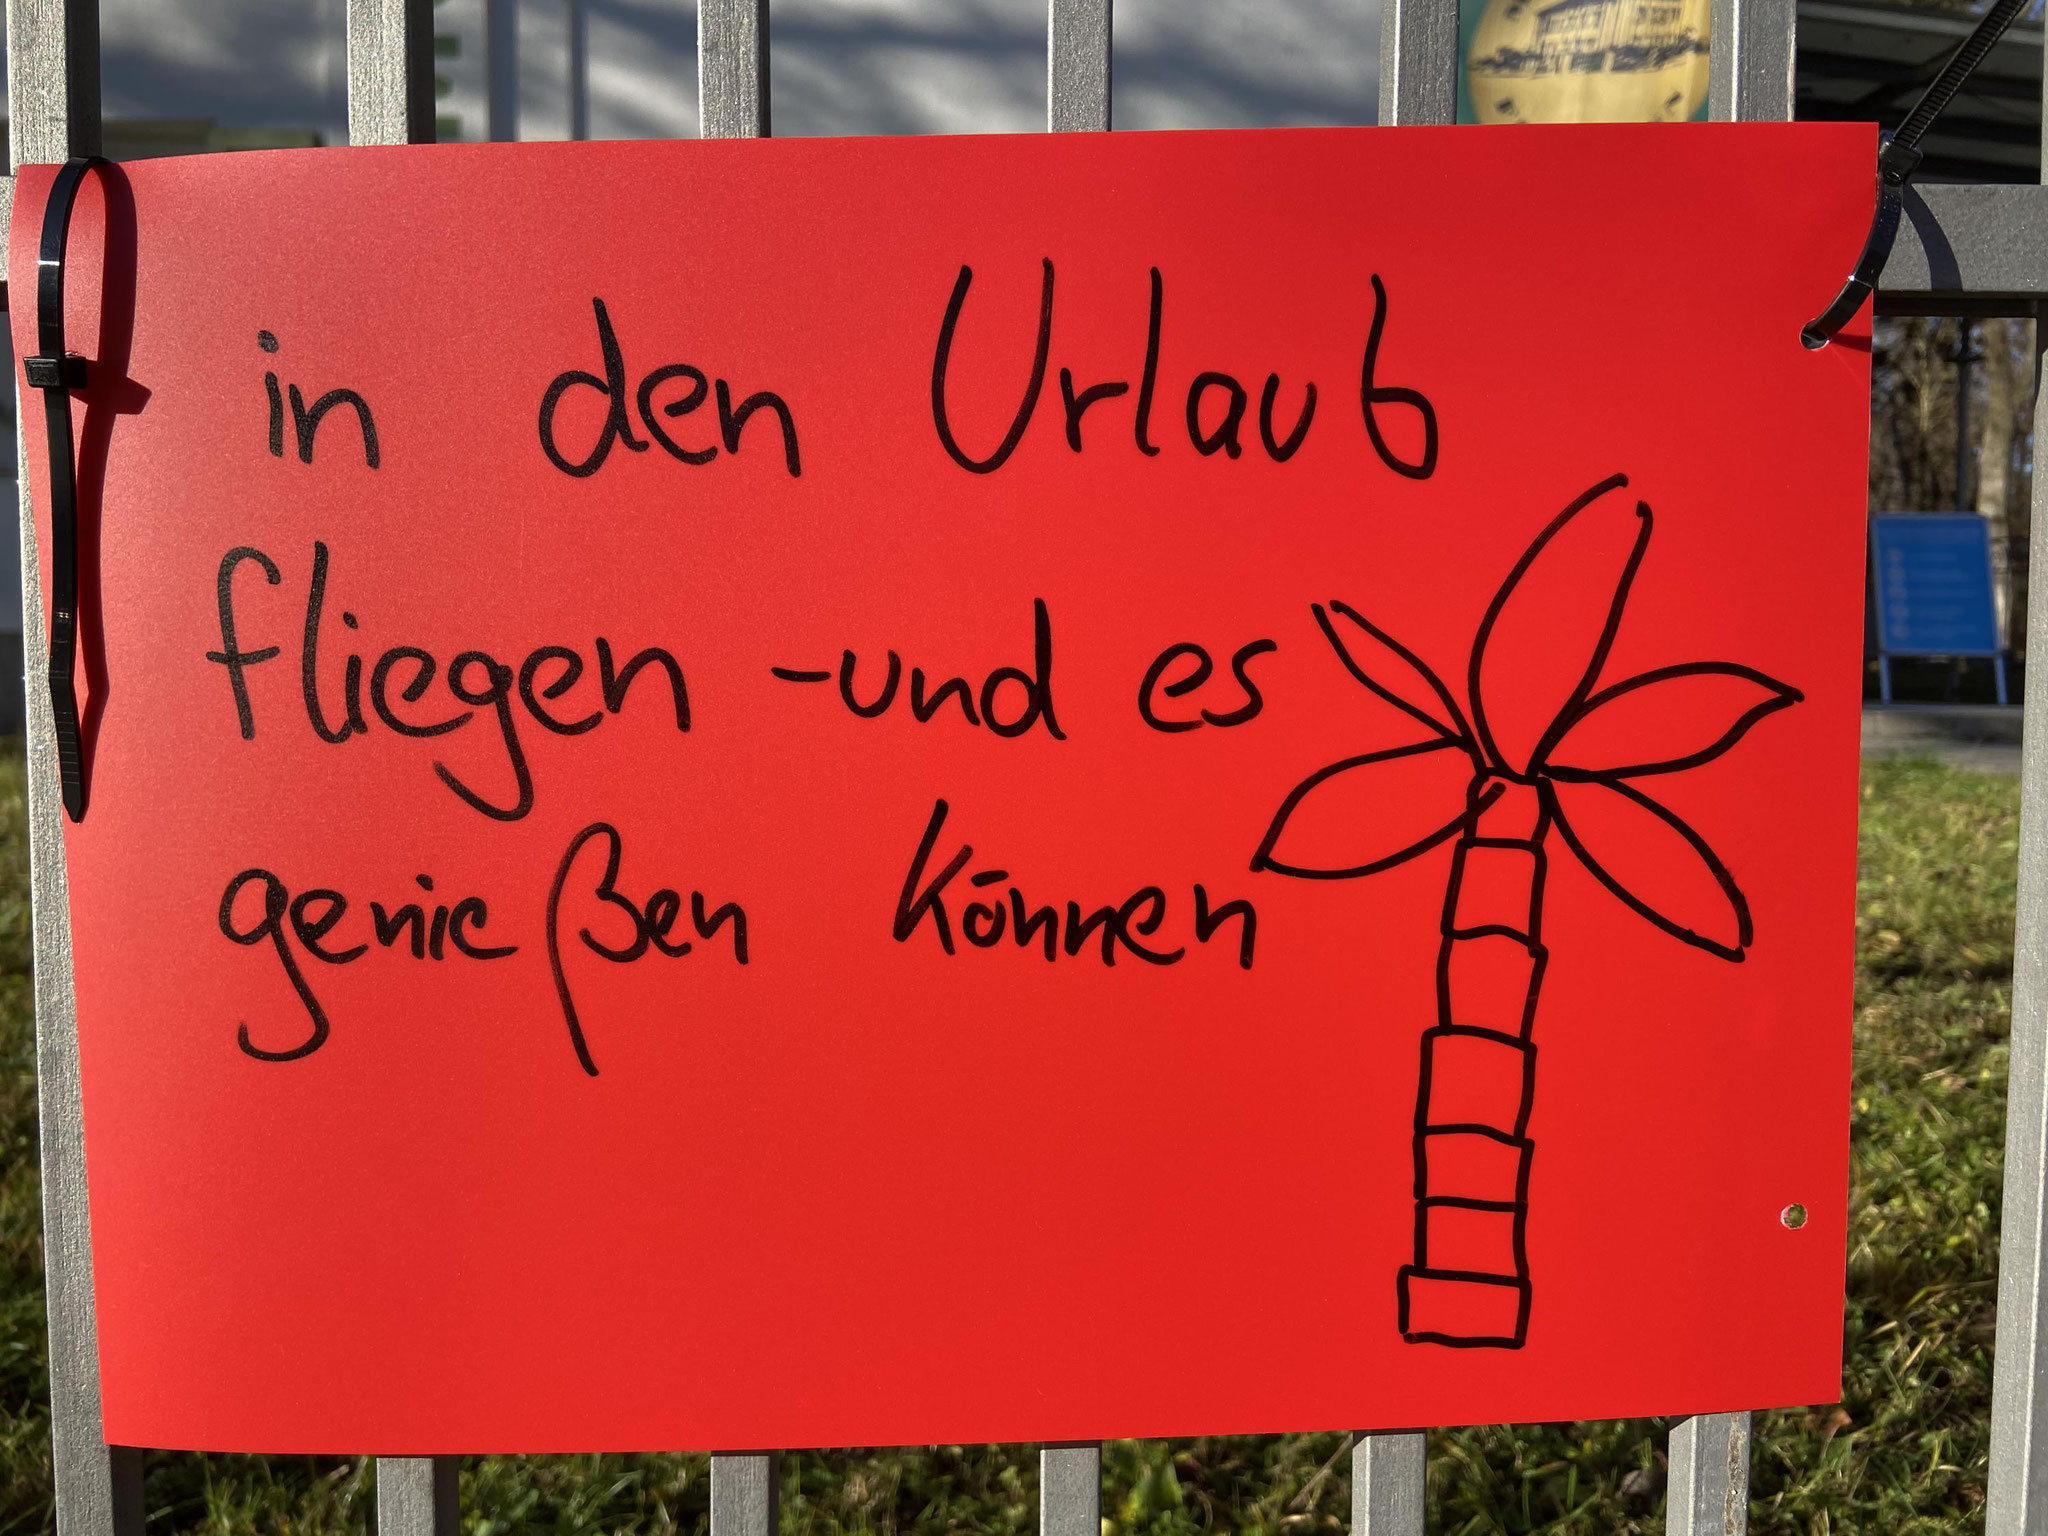 in den Urlaub
fliegen - und es
genießen können